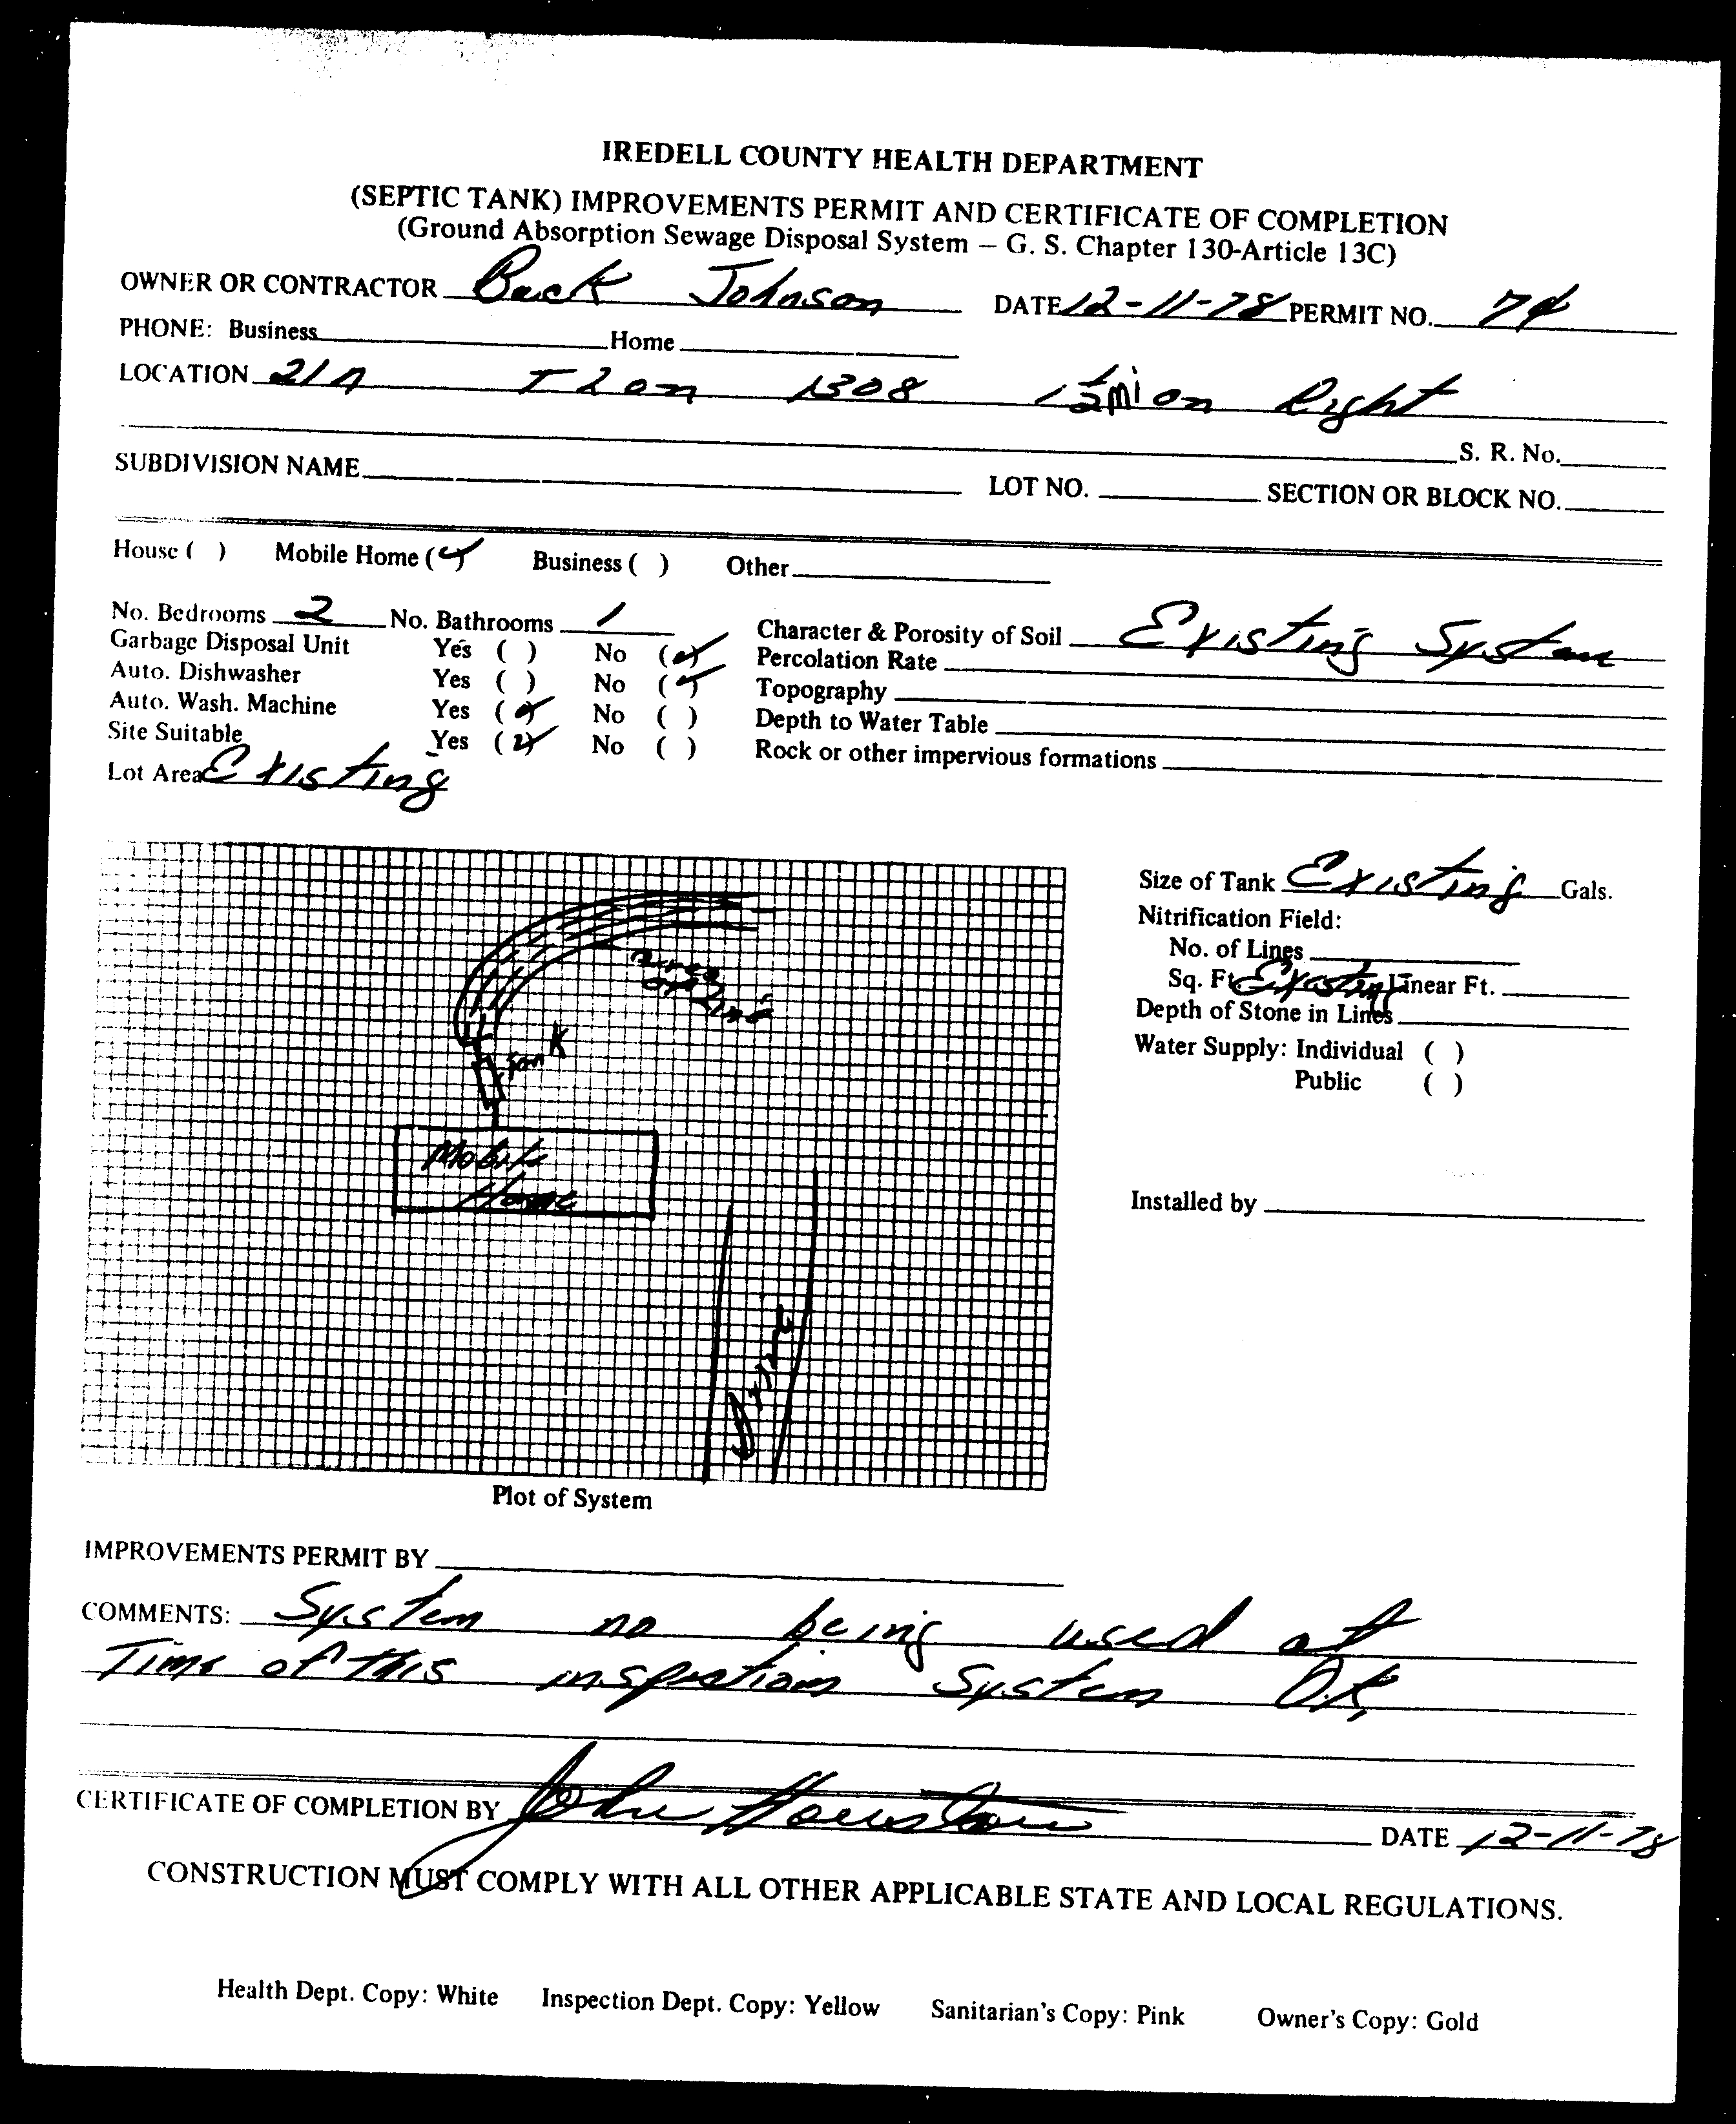 IREDELL COUNTY HEALTH DEPARTMENT
(SEPTIC TANK) IMPROVEMENTS PERMIT AND CERTIFICATE OF COMPLETION
(Ground Absorption Sewage Disposal System – G. S. Chapter 130-Article 13C)
OWNER OR CONTRACTOR Buck Johnson DATE 12-11-78 PERMIT NO.
PHONE: Business Home
LOCATION 21 N T L on 1308 1 1/2 mi on Right
S. R. No.
SUBDIVISION NAME LOT NO. SECTION OR BLOCK NO.
House ( ) Mobile Home (✓) Business ( ) Other
No. Bedrooms 2 No. Bathrooms 1 Character & Porosity of Soil Existing System
Garbage Disposal Unit Yes ( ) No (✓) Percolation Rate
Auto. Dishwasher Yes ( ) No (✓) Topography
Auto. Wash. Machine Yes (✓) No ( ) Depth to Water Table
Site Suitable Yes (✓) No ( ) Rock or other impervious formations
Lot Area Existing
Size of Tank Existing Gals.
Nitrification Field:
No. of Lines
Sq. Ft. Existing Linear Ft.
Depth of Stone in Lines
Water Supply: Individual ( )
Public ( )
Installed by
Tank
Mobile
Home
Drive
Plot of System
IMPROVEMENTS PERMIT BY
COMMENTS: System no being used at
Time of this inspection System O.K.
CERTIFICATE OF COMPLETION BY John Houston DATE 12-11-78
CONSTRUCTION MUST COMPLY WITH ALL OTHER APPLICABLE STATE AND LOCAL REGULATIONS.
Health Dept. Copy: White Inspection Dept. Copy: Yellow Sanitarian's Copy: Pink Owner's Copy: Gold